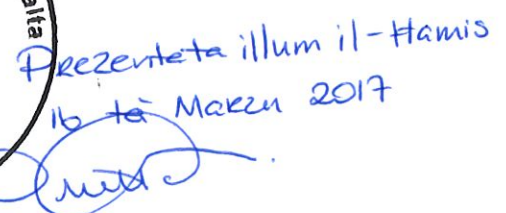 alta
Prezenteta illum il-Hamis
16 ta Marzu 2017